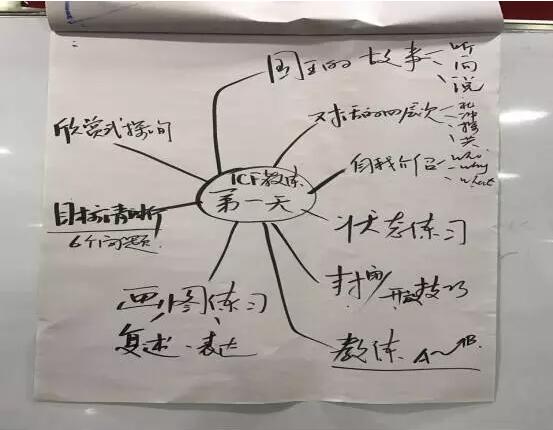 ICF教练
第一天
国王的故事
听
问
说
对话的四层次
礼
冲
探
共
自我介绍
who
why
what
状态练习
封闭/开放技巧
教练 A~B
画图练习
复述·表达
目标清晰
6个问题
欣赏式探询